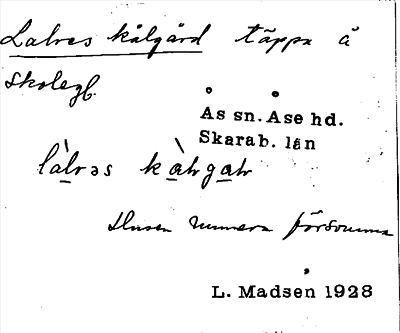 Lalres kålgård täppa å
skolegb.
Ås sn. Åse hd.
Skarab. län
làlrəs kàlrgalr
Husen numera försvunna
L. Madsen 1928